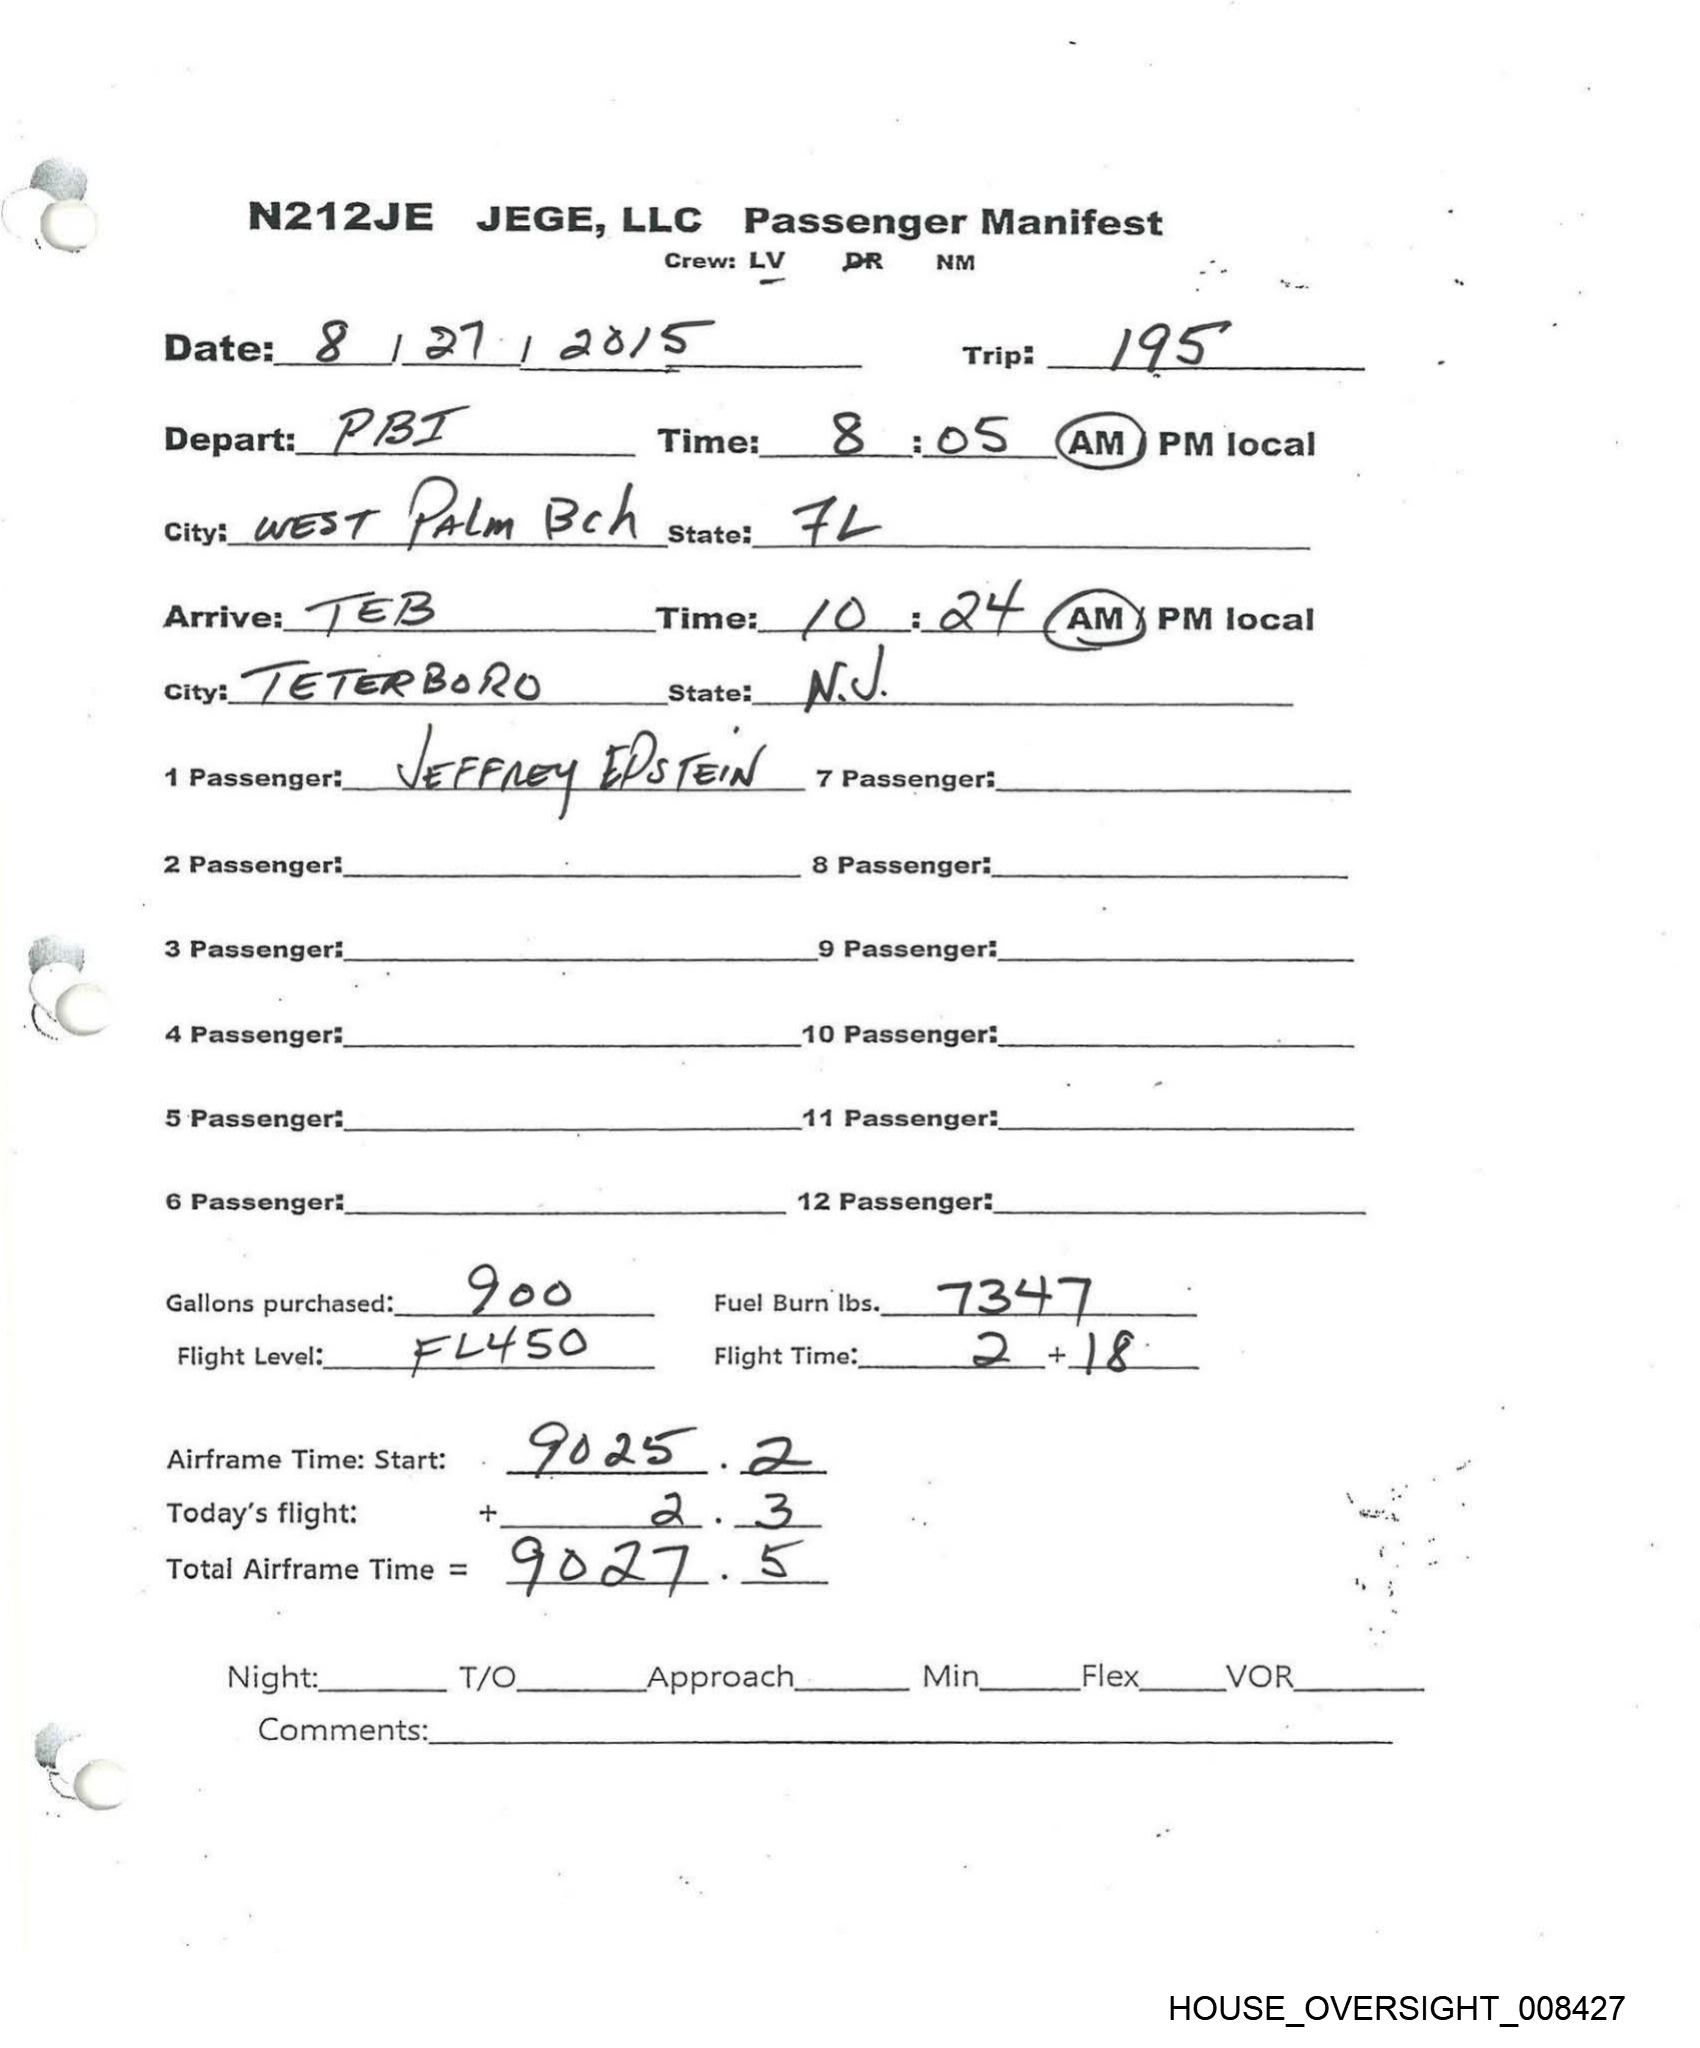 N212JE JEGE, LLC Passenger Manifest
Crew: LV DR NM
Date: 8 / 27 / 2015 Trip: 195
Depart: PBI Time: 8 : 05 AM / PM local
City: WEST PALM Bch State: FL
Arrive: TEB Time: 10 : 24 AM / PM local
City: TETERBORO State: N.J.
1 Passenger: JEFFREY EPSTEIN 7 Passenger:
2 Passenger: 8 Passenger:
3 Passenger: 9 Passenger:
4 Passenger: 10 Passenger:
5 Passenger: 11 Passenger:
6 Passenger: 12 Passenger:
Gallons purchased: 900 Fuel Burn lbs. 7347
Flight Level: FL450 Flight Time: 2 + 18
Airframe Time: Start: 9025 . 2
Today's flight: + 2 . 3
Total Airframe Time = 9027 . 5
Night: T/O Approach Min Flex VOR
Comments:
HOUSE_OVERSIGHT_008427